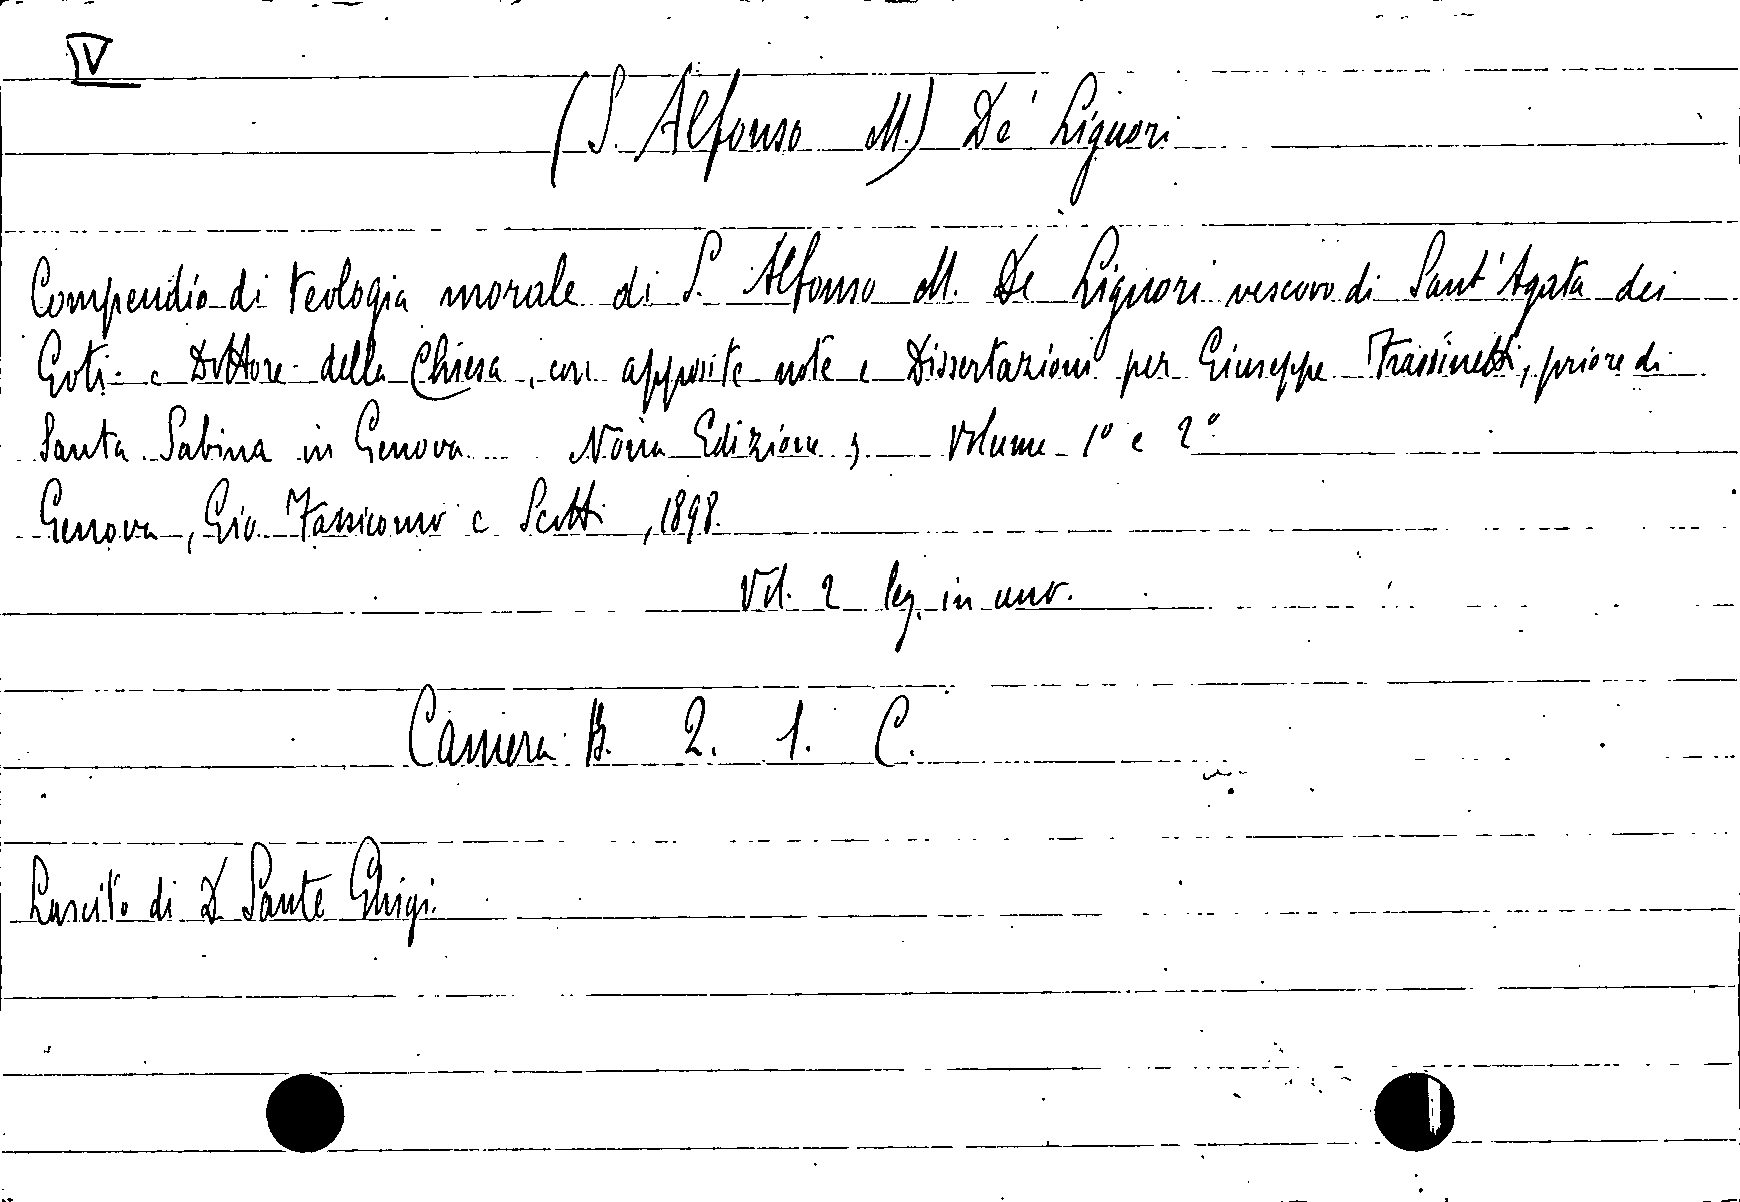 IV
(S. Alfonso M.) De' Liguori
Compendio di teologia morale di S. Alfonso M. De Liguori vescovo di Sant'Agata dei
Goti e Dottore della Chiesa, con apposite note e Dissertazioni per Giuseppe Frassinetti, priore di
Santa Sabina in Genova Nona Edizione, Volume 1° e 2°
Genova, Gio. Fassicomo e Scotti, 1898.
Vol. 2 leg. in uno.
Camera B. 2. 1. C.
Lascito di D. Sante Ghigi.